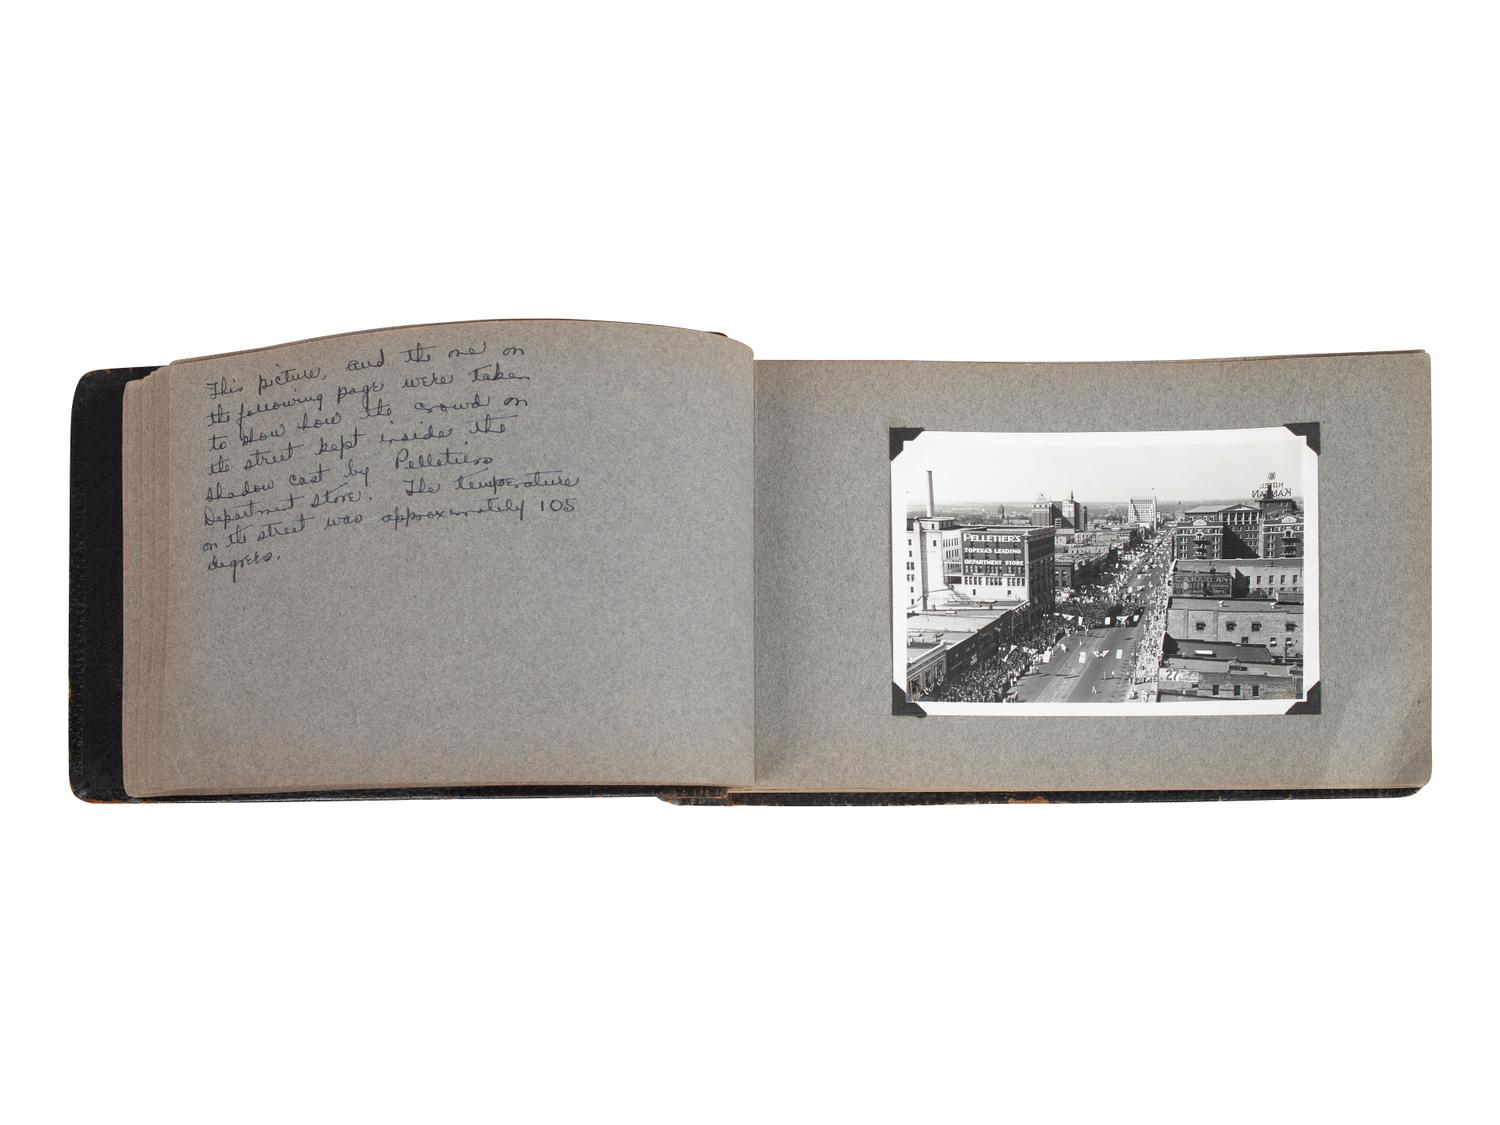 This picture, and the one on
the following page were taken
to show how the crowd on
the street kept inside the
shadow cast by Pelletiers
Department Store. The temperature
on the street was approximately 105
degrees.
PELLETIER'S
TOPEKA'S LEADING
DEPARTMENT STORE
HOTEL
KANSAN
27